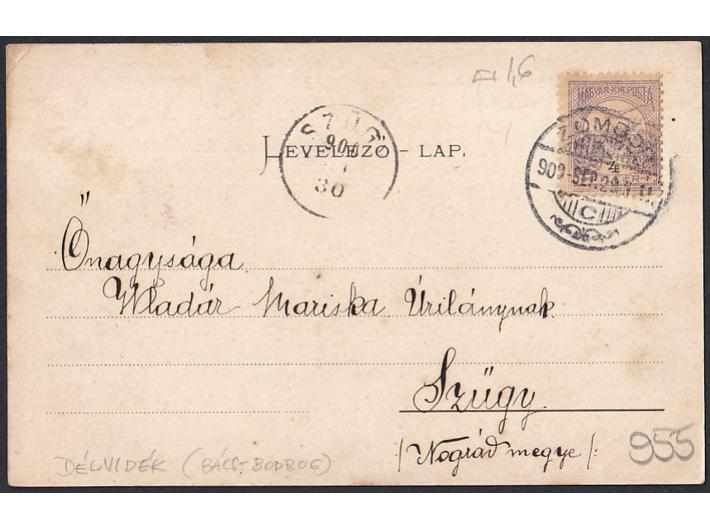 1,6
MAGYAR KIR. POSTA
ZOMBOR
4
909 SEP. 29
C
SZÜGY
90
30
LEVELEZŐ - LAP.
Őnagysága
Wladár Mariska Úrilánynak
Szügy.
/Nográd megye/:
955
DÉLVIDÉK (BÁCS-BODROG)